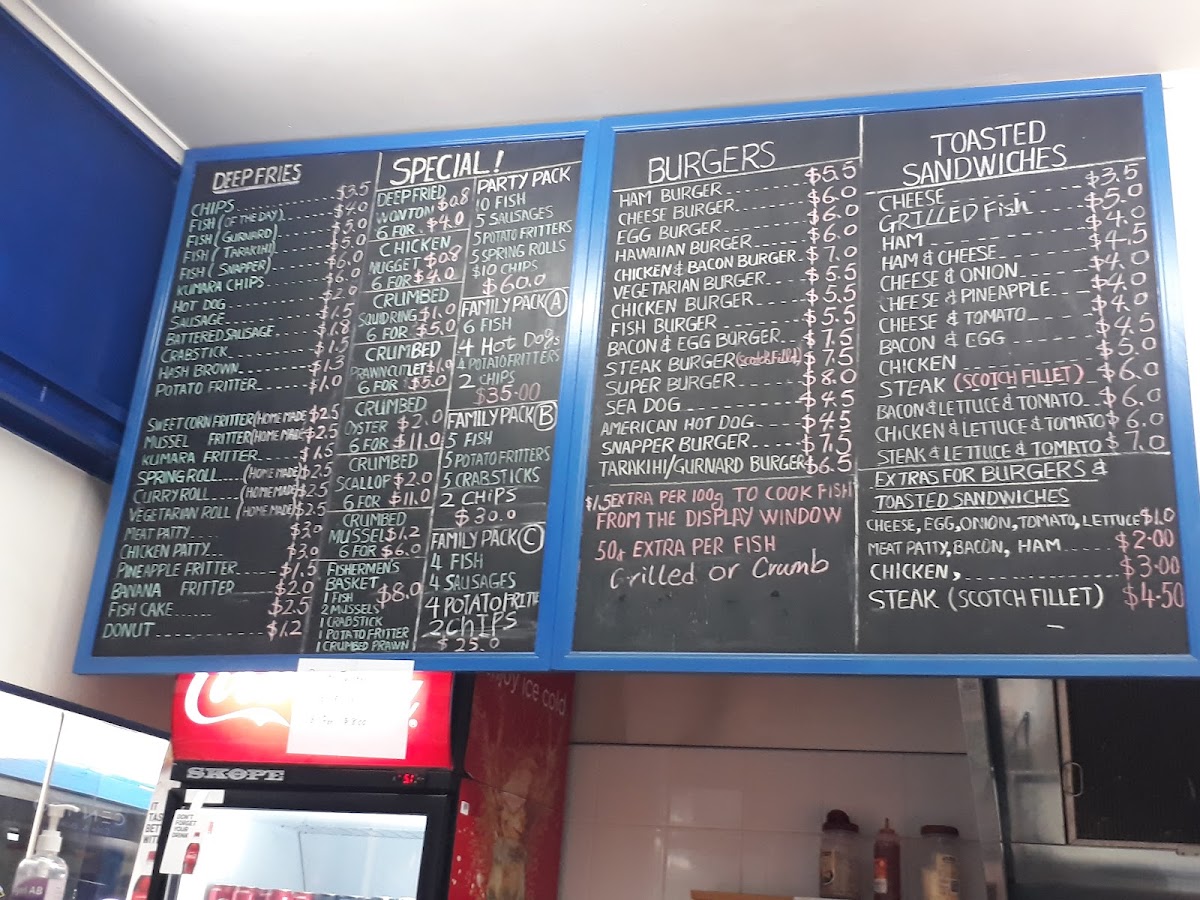 DEEP FRIES
CHIPS $3.5
FISH (OF THE DAY) $4.0
FISH (GURNARD) $5.0
FISH (TARAKIHI) $5.0
FISH (SNAPPER) $6.0
KUMARA CHIPS $6.0
HOT DOG $2.0
SAUSAGE $1.5
BATTERED SAUSAGE $1.8
CRABSTICK $1.5
HASH BROWN $1.3
POTATO FRITTER $1.0
SWEET CORN FRITTER (HOME MADE $2.5
MUSSEL FRITTER (HOME MADE $2.5
KUMARA FRITTER $1.5
SPRING ROLL (HOME MADE) $2.5
CURRY ROLL (HOME MADE) $2.5
VEGETARIAN ROLL (HOME MADE) $2.5
MEAT PATTY $2.0
CHICKEN PATTY $3.0
PINEAPPLE FRITTER $1.5
BANANA FRITTER $2.0
FISH CAKE $2.5
DONUT $1.2
SPECIAL!
DEEP FRIED
WONTON $0.8
6 FOR $4.0
CHICKEN
NUGGET $0.8
6 FOR $4.0
CRUMBED
SQUID RING $1.0
6 FOR $5.0
CRUMBED
PRAWN CUTLET $1.0
6 FOR $5.0
CRUMBED
OYSTER $2.0
6 FOR $11.0
CRUMBED
SCALLOP $2.0
6 FOR $11.0
CRUMBED
MUSSEL $1.2
6 FOR $6.0
FISHERMEN'S
BASKET
$8.0
1 FISH
2 MUSSELS
1 CRABSTICK
1 POTATO FRITTER
1 CRUMBED PRAWN
PARTY PACK
10 FISH
5 SAUSAGES
5 POTATO FRITTERS
5 SPRING ROLLS
$10 CHIPS
$60.0
FAMILY PACK A
6 FISH
4 Hot Dogs
4 POTATO FRITTERS
2 CHIPS
$35.00
FAMILY PACK B
5 FISH
5 POTATO FRITTERS
5 CRABSTICKS
2 CHIPS
$30.0
FAMILY PACK C
4 FISH
4 SAUSAGES
4 POTATO FRITTE
2 CHIPS
$25.0
BURGERS
HAM BURGER $5.5
CHEESE BURGER $6.0
EGG BURGER $6.0
HAWAIIAN BURGER $6.0
CHICKEN & BACON BURGER $7.0
VEGETARIAN BURGER $5.5
CHICKEN BURGER $5.5
FISH BURGER $5.5
BACON & EGG BURGER $7.5
STEAK BURGER (Scotch Fillet) $7.5
SUPER BURGER $8.0
SEA DOG $4.5
AMERICAN HOT DOG $4.5
SNAPPER BURGER $7.5
TARAKIHI/GURNARD BURGER $6.5
$1.5 EXTRA PER 100g TO COOK FISH
FROM THE DISPLAY WINDOW
50¢ EXTRA PER FISH
Grilled or Crumb
TOASTED
SANDWICHES
CHEESE $3.5
GRILLED Fish $5.0
HAM $4.0
HAM & CHEESE $4.5
CHEESE & ONION $4.0
CHEESE & PINEAPPLE $4.0
CHEESE & TOMATO $4.0
BACON & EGG $4.5
CHICKEN $5.0
STEAK (SCOTCH FILLET) $6.0
BACON & LETTUCE & TOMATO $6.0
CHICKEN & LETTUCE & TOMATO $6.0
STEAK & LETTUCE & TOMATO $7.0
EXTRAS FOR BURGERS &
TOASTED SANDWICHES
CHEESE, EGG, ONION, TOMATO, LETTUCE $1.0
MEAT PATTY, BACON, HAM $2.00
CHICKEN, $3.00
STEAK (SCOTCH FILLET) $4.50
enjoy ice cold
SKOPE
DON'T
FORGET
YOUR
DRINK